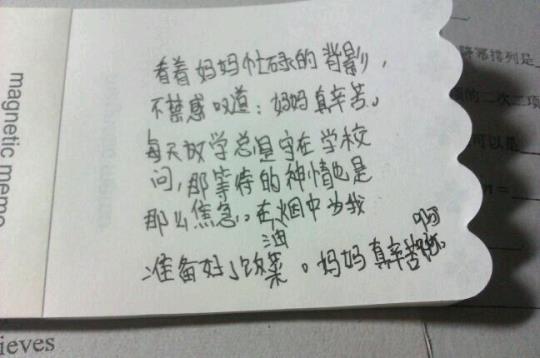 看着妈妈忙碌的背影，
不禁感叹道：妈妈真辛苦。
每天放学总是守在学校
问，那等待的神情也是
那么焦急。在油烟中为我
准备好了饭菜。妈妈真辛苦啊
magnetic memo
ieves
降幂排列是
的二次三项
可以是